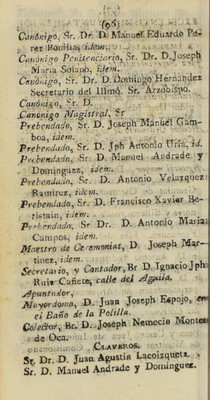 (96)
Canónigo, Sr. Dr. D. Manuel Eduardo Pe-
rez Bonilla, idem.
Canónigo Penitenciario, Sr. Dr. D. Joseph
Maria Solano, idem.
Canónigo, Sr. Dr. D. Domingo Hernandez
Secretario del Illmô. Sr. Arzobispo.
Canónigo, Sr. D.
Canonigo Magistral, Sr
Prebendado, Sr. D. Joseph Manuel Gam-
boa, idem.
Prebendado, Sr. D. Jph Antonio Uria, id.
Prebendado, Sr. D. Manuel Andrade y
Dominguez, idem.
Prebendado, Sr. D. Antonio Velazquez
Ramirez, idem.
Prebendado, Sr. D. Francisco Xavier Be-
ristain, idem.
Prebendado, Sr Dr. D. Antonio Maria
Campos, idem.
Maestro de Ceremonias, D. Joseph Mar-
tinez, idem.
Secretario, y Contador, Br D. Ignacio Jph
Ruiz Cañete, calle del Aguila.
Apuntador,
Mayordomo, D. Juan Joseph Espejo, en
el Baño de la Polilla.
Colector, Br. D. Joseph Nemecio Montes
de Oca.
CLAVEROS.
Sr. Dr. D. Juan Agustin Lacoizqueta.
Sr. D. Manuel Andrade y Dominguez.